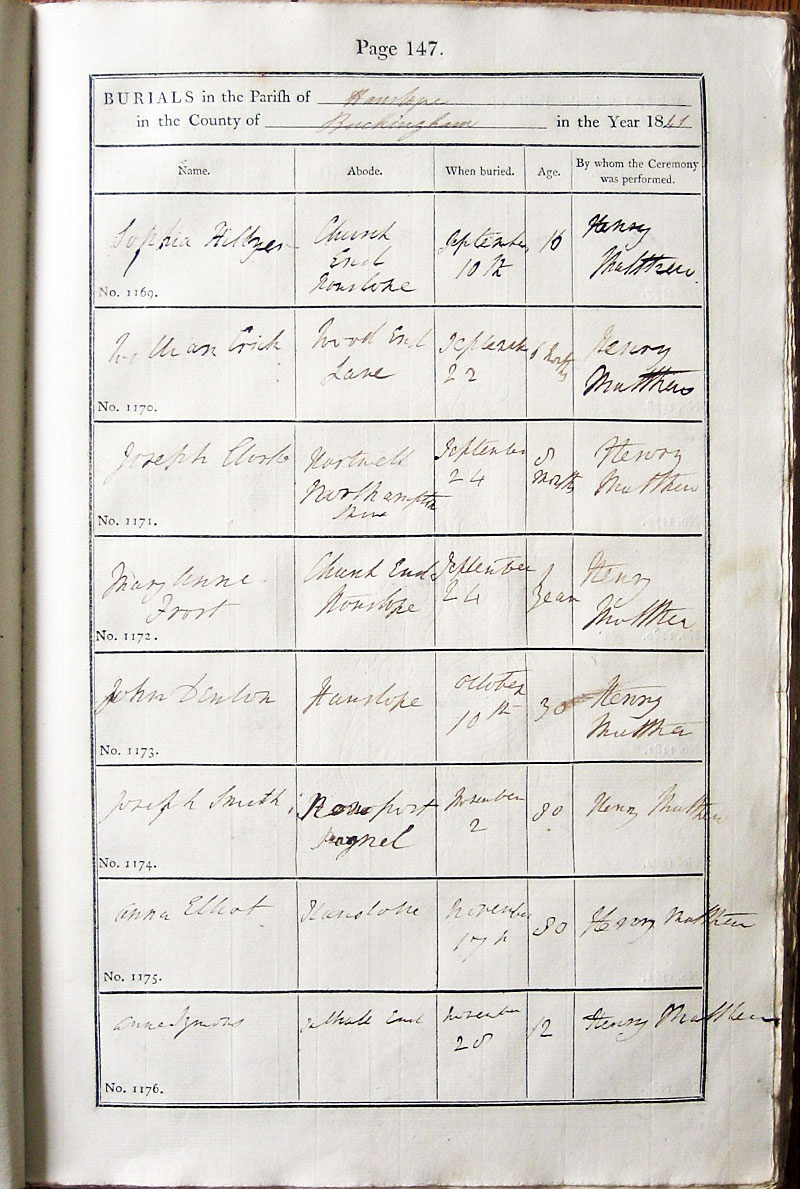 Page 147.
BURIALS in the Parish of Hanslope
in the County of Buckingham in the Year 1841
Name. Abode. When buried. Age. By whom the Ceremony was performed.
Sophia Hillyer Church End Hanslope September 10th 16 Henry Matthew
No. 1169.
William Wood End Lane September 22 Henry Matthew
No. 1170.
Joseph Clark Hartwell Northampton Shire September 24 8 Months Henry Matthew
No. 1171.
Mary Anne Frost Church End Hanslope September 24 1 Year Henry Matthew
No. 1172.
John Denton Hanslope October 10th 30 Henry Matthew
No. 1173.
Joseph Smith Newport Pagnel November 2 80 Henry Matthew
No. 1174.
Anna Elliot Hanslope November 17th 80 Henry Matthew
No. 1175.
Anne Symons End November 28 12 Henry Matthew
No. 1176.